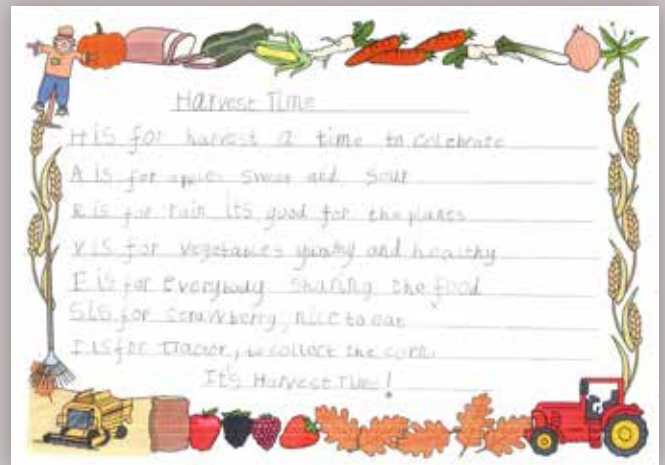 Harvest Time
H is for harvest a time to celebrate
A is for apples sweet and sour
R is for rain its good for the plants
V is for vegetables yummy and healthy
E is for everybody sharing the food
S is for strawberry, nice to eat
T is for Tractor, to collect the corn.
It's Harvest Time!